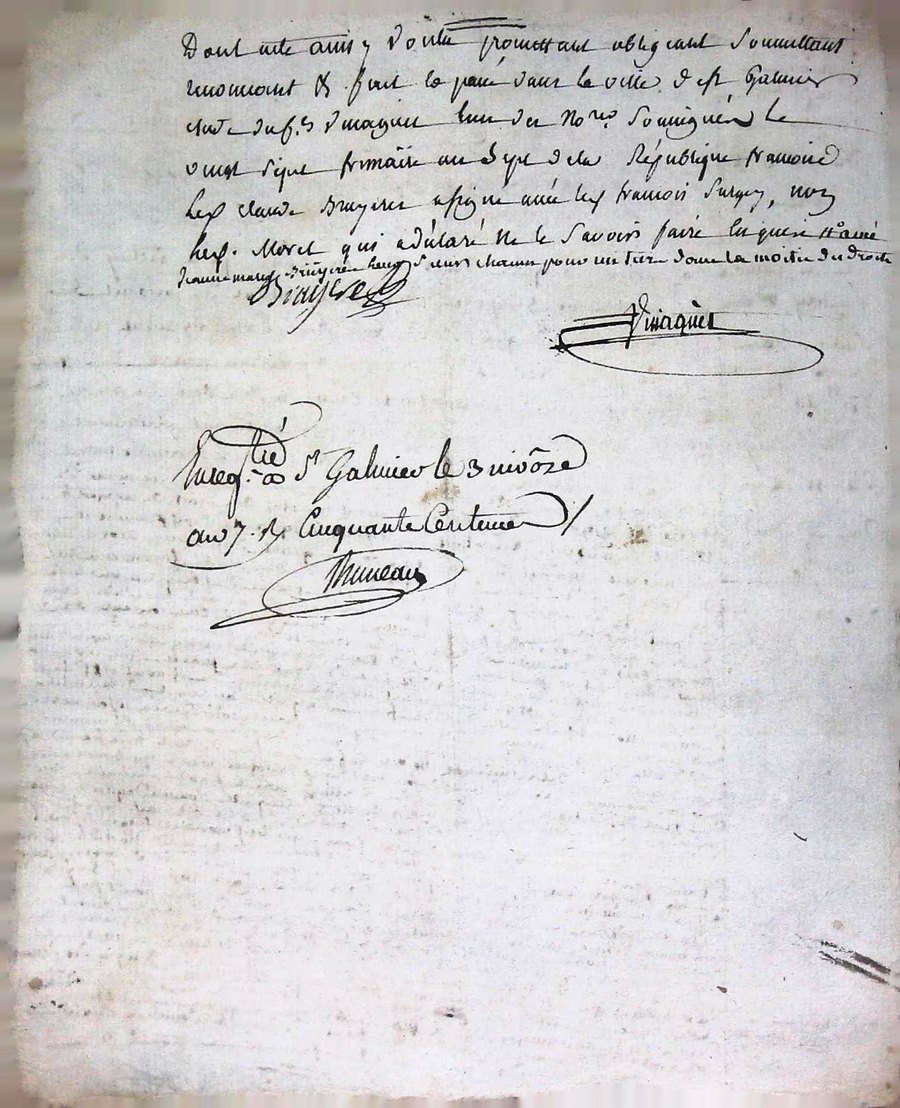 Dont acte ainsy voulu promettant obligeant Soumettant
renoncant & fait et passé dans la ville de St Galmier
etude du s. Vinagier l'un des Nores Soussignés le
vingt Sept frimaire an Sept de la République francoise
Claude Bruyeres a signé avec francois non
Morel qui a déclaré ne le Savoir faire Enquis
jeanne marie Bruyeres Seurs chacun pour un tiers dans la moitié des droits
Bruyere
Vinagier
Enregtré a St Galmier le 3 nivôse
an 7. R. Cinquante Centimes